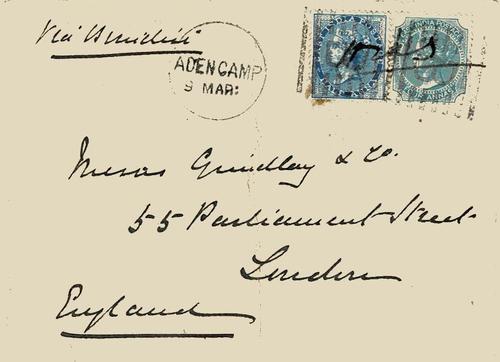 Via Brindisi
ADEN CAMP
9 MAR
EAST INDIA
HALF ANNA
INDIA
FOUR ANNAS
Messrs Grindlay & Co.
55 Parliament Street
London
England